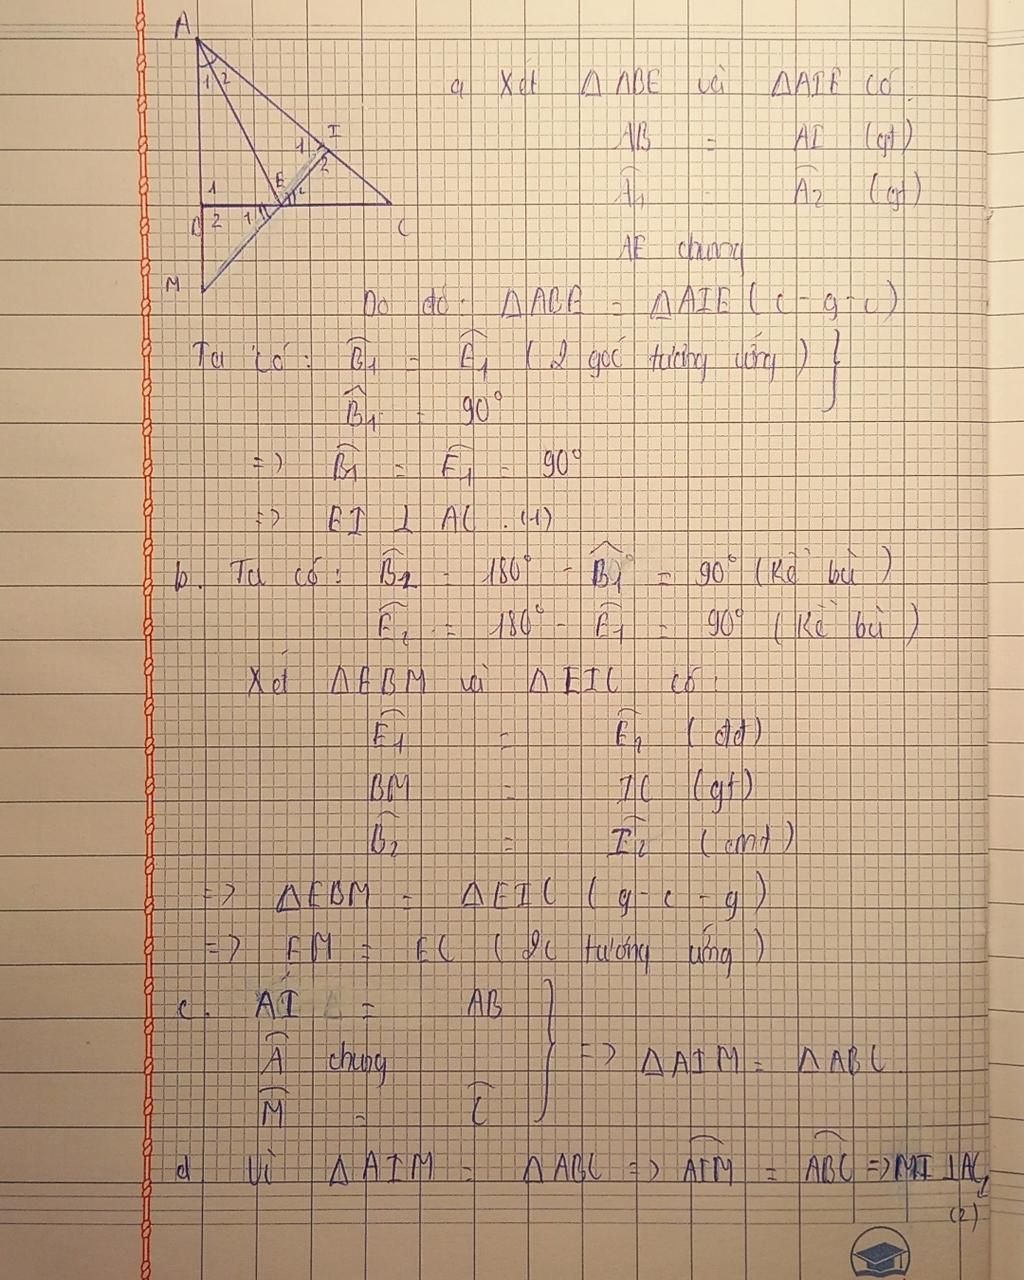 A
1 2
I
1
2
E
1
B 2 1 2
C
M
a, Xét ΔABE và ΔAIE có:
AB = AI (gt)
Â₁ = Â₂ (gt)
AE chung
Do đó: ΔABE = ΔAIE (c-g-c)
Ta có: B̂₁ = Ê₁ (2 góc tương ứng) }
B̂₁ = 90°
=> B̂₁ = Ê₁ = 90°
=> EI ⊥ AC. (1)
b. Ta có: B̂₂ = 180° - B̂₁ = 90° (Kề bù)
Ê₂ = 180° - Ê₁ = 90° (Kề bù)
Xét ΔEBM và ΔEIC có:
Ê₁ = Ê₂ (đđ)
BM = IC (gt)
B̂₂ = Î₂ (cmt)
=> ΔEBM = ΔEIC (g-c-g)
=> EM = EC (2c tương ứng)
c. AI = AB
Â chung } => ΔAIM = ΔABC
M̂ = Ĉ
d Vì ΔAIM = ΔABC => AIM̂ = ABĈ => MI ⊥ AC,
(2)